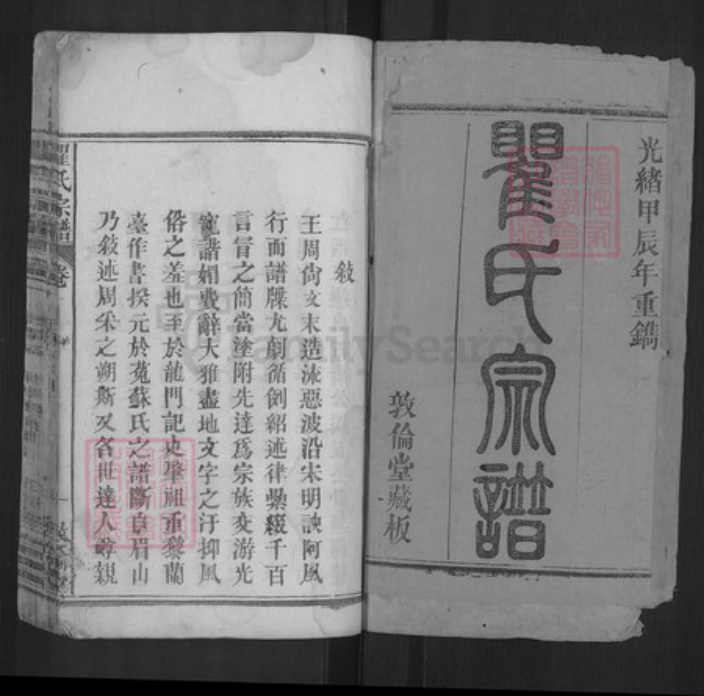 光緒甲辰年重鐫
瞿氏宗譜
敦倫堂藏板
敍
王周尙文末造沭惡波沿宋明諛阿風
行而譜牒尤劇循例紹述律縈綴千百
言冒之簡當塗附先達爲宗族交游光
寵諧媚費辭大雅盡地文字之汙抑風
俗之羞也至於龍門記史肇祖重黎蘭
臺作書揆元於菟蘇氏之譜斷自眉山
乃敍述周釆之朔斯又名世達人尊親
瞿氏宗譜 卷
FamilySearch